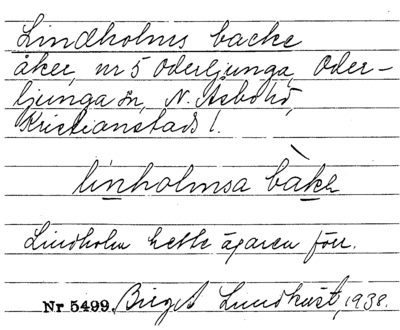 Lindholms backe
åker, nr 5 Oderljunga, Oder-
ljunga sn, N. Åsbo hd,
Kristianstads l.
linholmsa bàkə
Lindholm hette ägaren förr.
Nr 5499. Birgit Lundkvist, 1938.